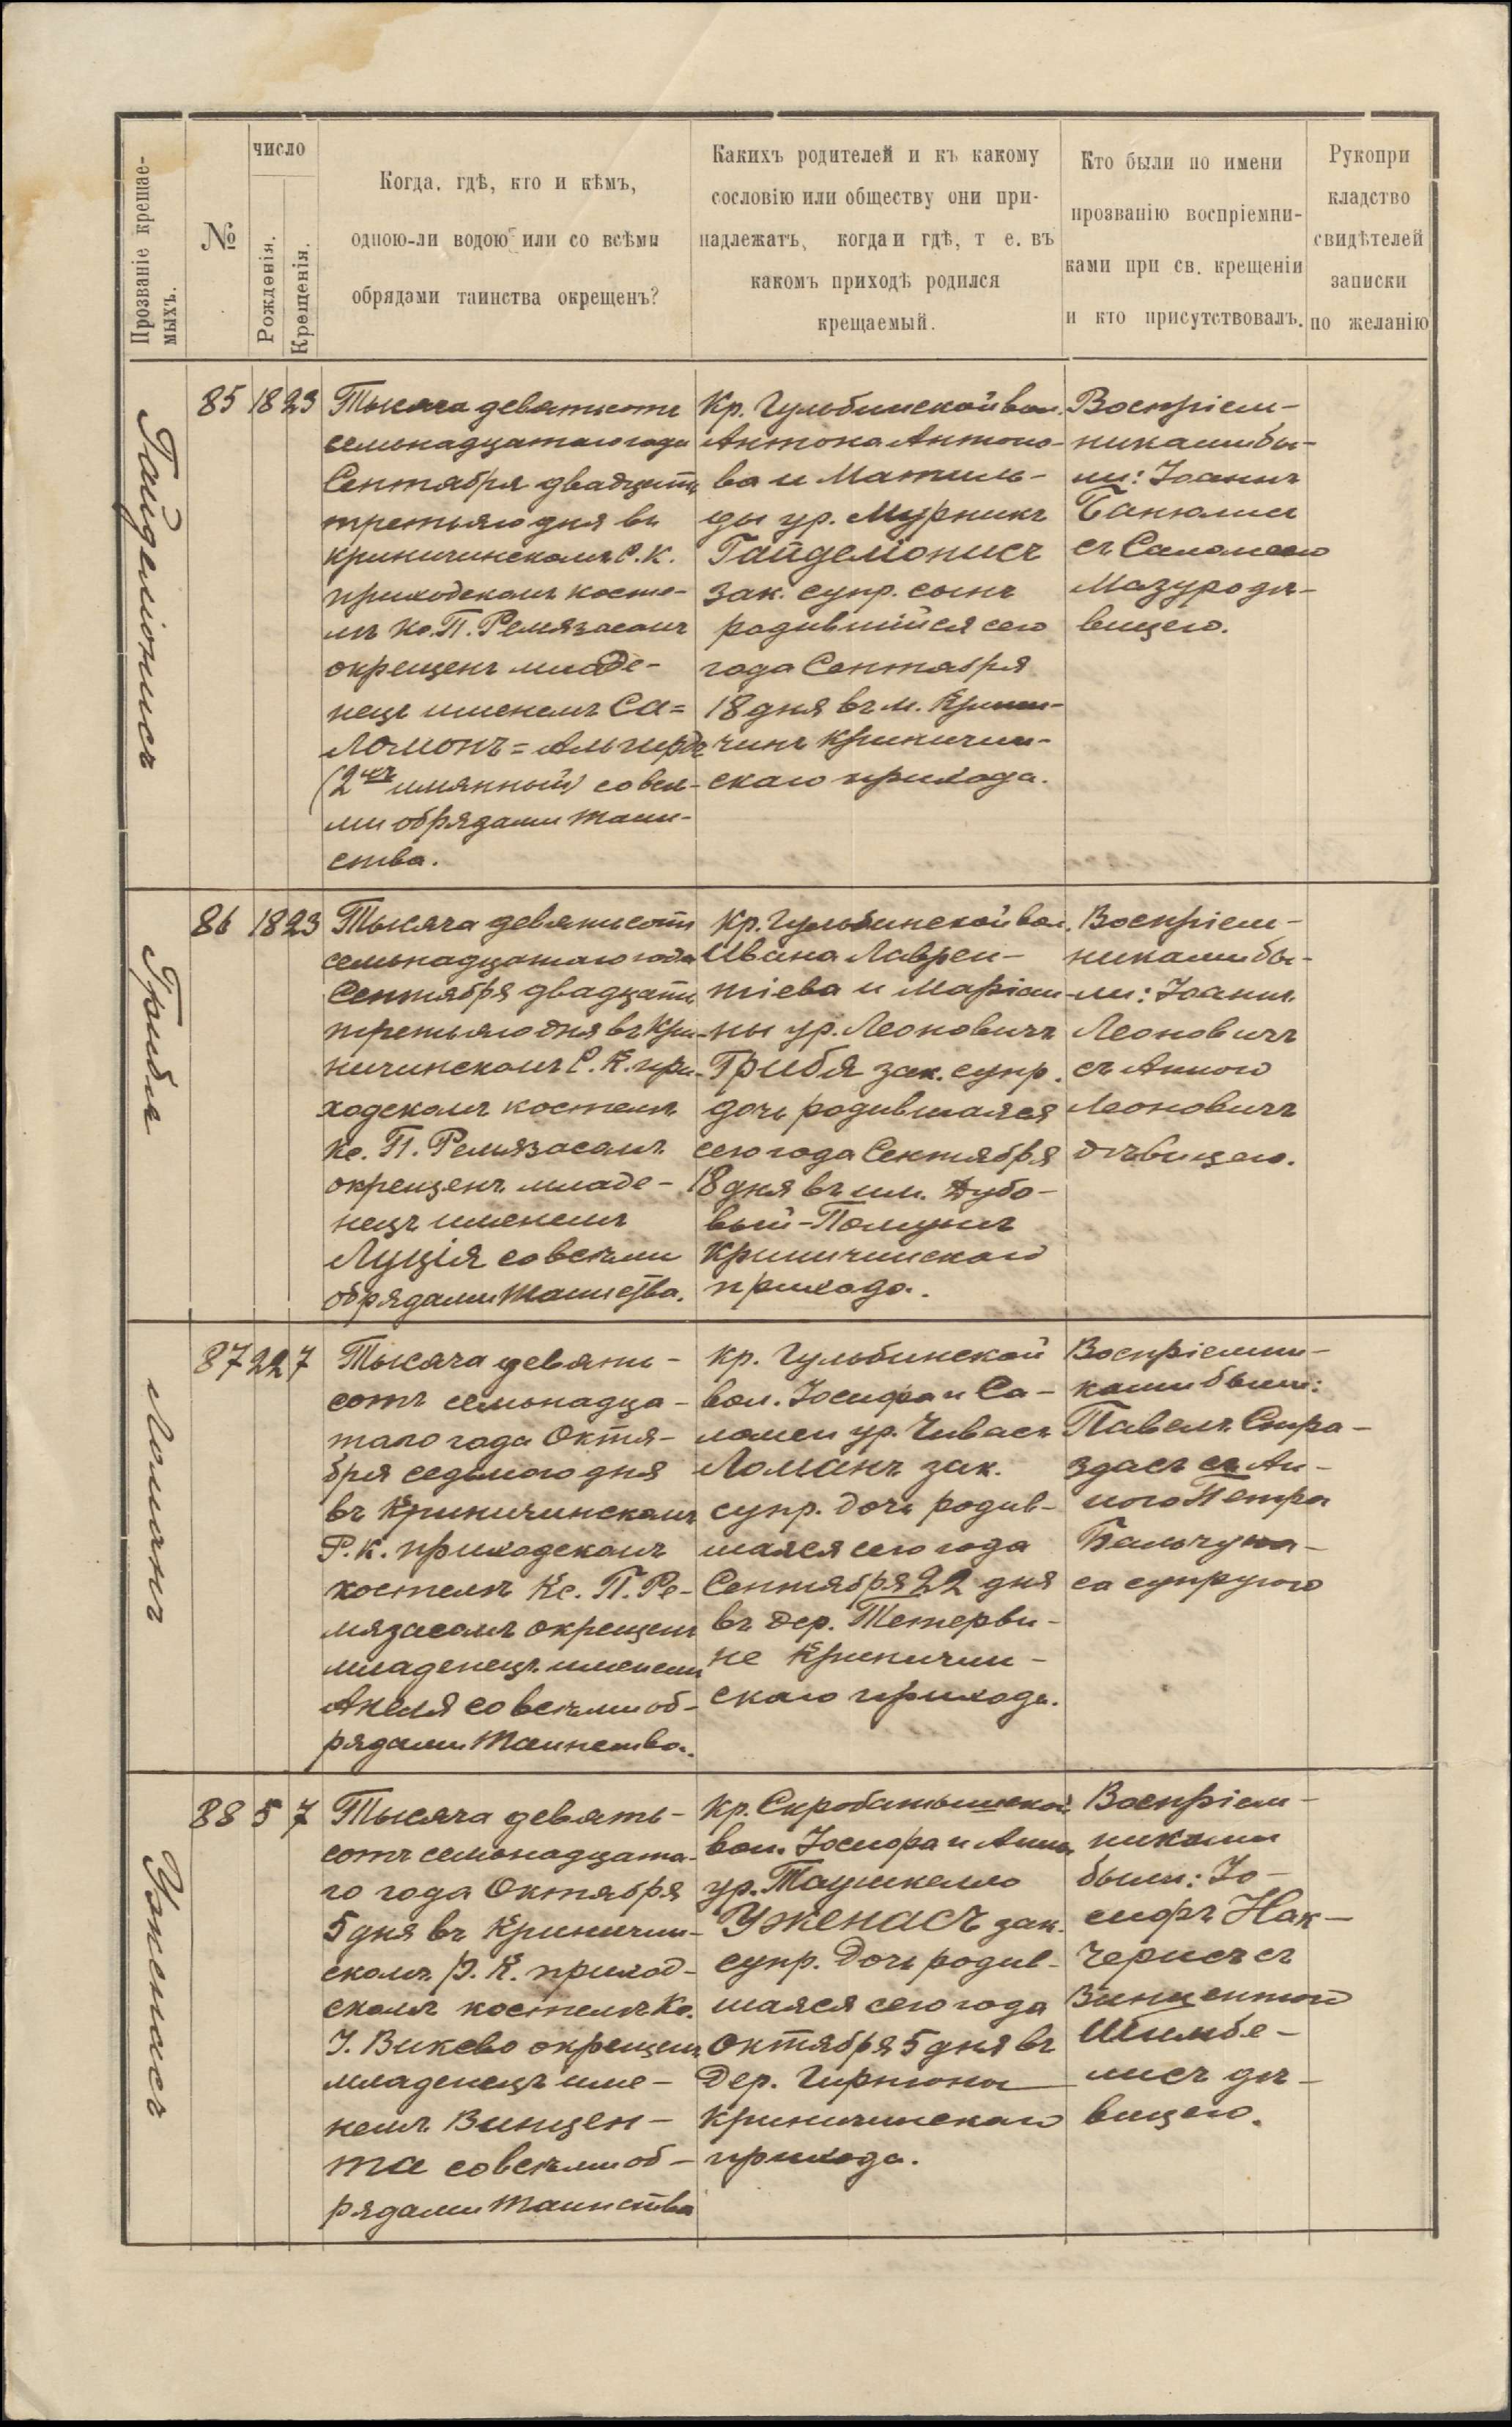 Прозваніе крещае-
мыхъ.
№
число
Рожденія.
Крещенія.
Когда, гдѣ, кто и кѣмъ,
одною-ли водою или со всѣми
обрядами таинства окрещенъ?
Какихъ родителей и къ какому
сословію или обществу они при-
надлежатъ, когда и гдѣ, т е. въ
какомъ приходѣ родился
крещаемый.
Кто были по имени
прозванію воспріемни-
ками при св. крещеніи
и кто присутствовалъ.
Рукопри
кладство
свидѣтелей
записки
по желанію
Гайделіонисъ
85 18 23
Тысяча девятьсотъ
семьнадцатаго года
Сентября двадцать
третьяго дня въ
криничинскомъ Р. К.
приходскомъ косте-
лѣ Кс. П. Ремязасомъ
окрещенъ младе-
нецъ именемъ Са=
ломонъ=Альгирдъ
(2хъ имянный) со всѣ-
ми обрядами таин-
ства.
Кр. Гульбинской вол.
Антона Антоно-
ва и Матиль-
ды ур. Мурникъ
Гайделіонисъ
зак. супр. сынъ
родившійся сего
года Сентября
18 дня въ м. Крини-
чинъ Криничин-
скаго прихода.
Воспріем-
никами бы-
ли: Іоаннъ
съ Саломеею
Мазуро дѣ-
вицею.
Гриби
86 18 23
Тысяча девятьсотъ
семьнадцатаго года
Сентября двадцать
третьяго дня въ Кри-
ничинскомъ Р. К. при-
ходскомъ костелѣ
Кс. П. Ремязасомъ
окрещенъ младе-
нецъ именемъ
Луція со всѣми
обрядами таинства.
Кр. Гульбинской вол.
Ивана Лаврен-
тіева и Маріан-
ны ур. Леоновичъ
Грибя зак. супр.
дочь родившаяся
сего года Сентября
18 дня въ им. Дубо-
вый-
Криничинскаго
прихода.
Воспріем-
никами бы-
ли: Іоаннъ
Леоновичъ
съ Анною
Леоновичъ
дѣвицею.
Ломанъ
87 22 7
Тысяча девять-
сотъ семьнадца-
таго года Октя-
бря седьмого дня
въ Криничинскомъ
Р. К. приходскомъ
костелѣ Кс. П. Ре-
мязасомъ окрещенъ
младенецъ именемъ
Анеля со всѣми об-
рядами таинства.
Кр. Гульбинской
вол. Іосифа и Са-
ломеи ур. Чивасъ
Ломанъ зак.
супр. дочь родив-
шаяся сего года
Сентября 22 дня
въ дер. Тетерви-
не Криничин-
скаго прихода.
Воспріемни-
ками были:
Павелъ Стра-
здасъ съ Ан-
ною Петра
Бальчуна-
са супругою
Уженасъ
88 5 7
Тысяча девять-
сотъ семьнадцата-
го года Октября
5 дня въ Криничин-
скомъ Р. К. приход-
скомъ костелѣ Кс.
І. Виксво окрещенъ
младенецъ име-
немъ Винцен-
та со всѣми об-
рядами таинства
Кр. Скробатышской
вол. Іосифа и Анны
ур. Таушкелло
Уженасъ зак.
супр. дочь родив-
шаяся сего года
Октября 5 дня въ
дер. Гиртоны
Криничинскаго
прихода.
Воспріем-
никами
были: Іо-
сифъ Нак-
черисъ съ
Винцентою
Шимбе-
лисъ дѣ-
вицею.